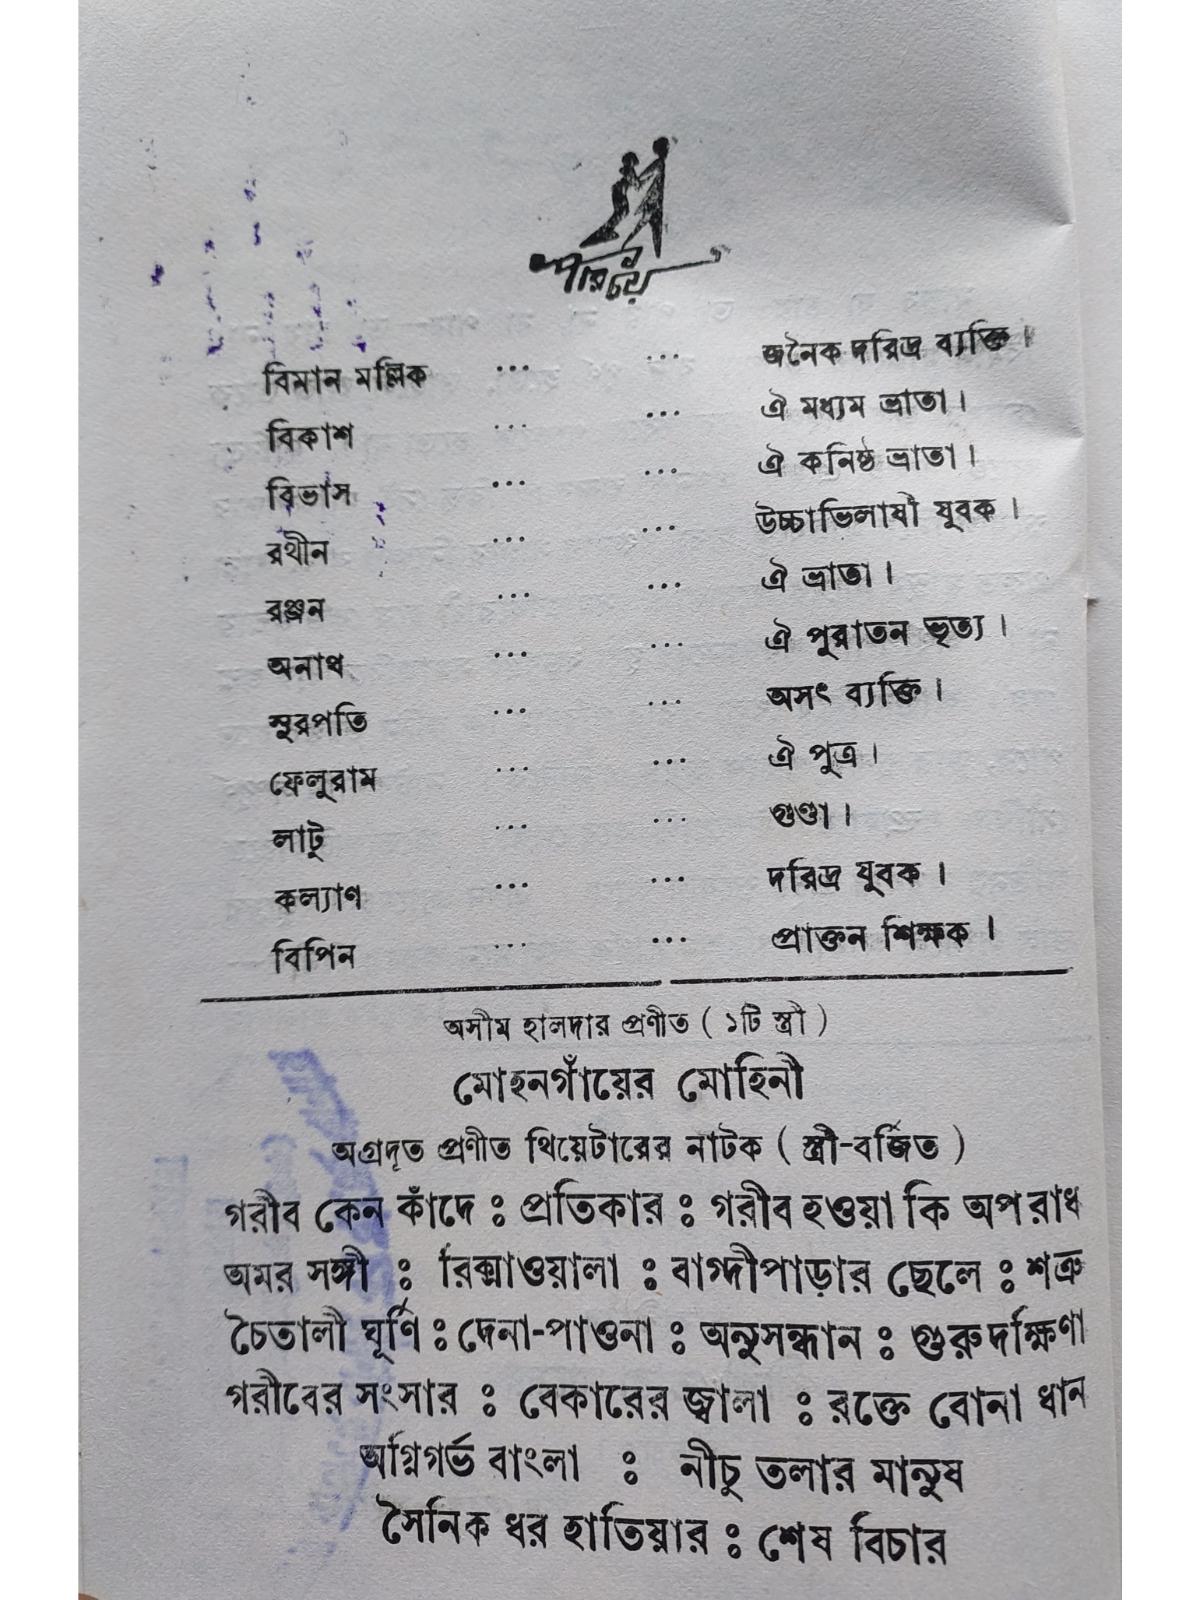 পরিচয়
বিমান মল্লিক ... ... জনৈক দরিদ্র ব্যক্তি।
বিকাশ ... ... ঐ মধ্যম ভ্রাতা।
বিভাস ... ... ঐ কনিষ্ঠ ভ্রাতা।
রথীন ... ... উচ্চাভিলাষী যুবক।
রঞ্জন ... ... ঐ ভ্রাতা।
অনাথ ... ... ঐ পুরাতন ভৃত্য।
সুরপতি ... ... অসৎ ব্যক্তি।
ফেলুরাম ... ... ঐ পুত্র।
লাটু ... ... গুণ্ডা।
কল্যাণ ... ... দরিদ্র যুবক।
বিপিন ... ... প্রাক্তন শিক্ষক।
অসীম হালদার প্রণীত ( ১টি স্ত্রী )
মোহনগাঁয়ের মোহিনী
অগ্রদূত প্রণীত থিয়েটারের নাটক ( স্ত্রী-বর্জিত )
গরীব কেন কাঁদে ঃ প্রতিকার ঃ গরীব হওয়া কি অপরাধ
অমর সঙ্গী ঃ রিক্সাওয়ালা ঃ বাগ্দীপাড়ার ছেলে ঃ শত্রু
চৈতালী ঘূর্ণি ঃ দেনা-পাওনা ঃ অনুসন্ধান ঃ গুরুদক্ষিণা
গরীবের সংসার ঃ বেকারের জ্বালা ঃ রক্তে বোনা ধান
অগ্নিগর্ভ বাংলা ঃ নীচু তলার মানুষ
সৈনিক ধর হাতিয়ার ঃ শেষ বিচার